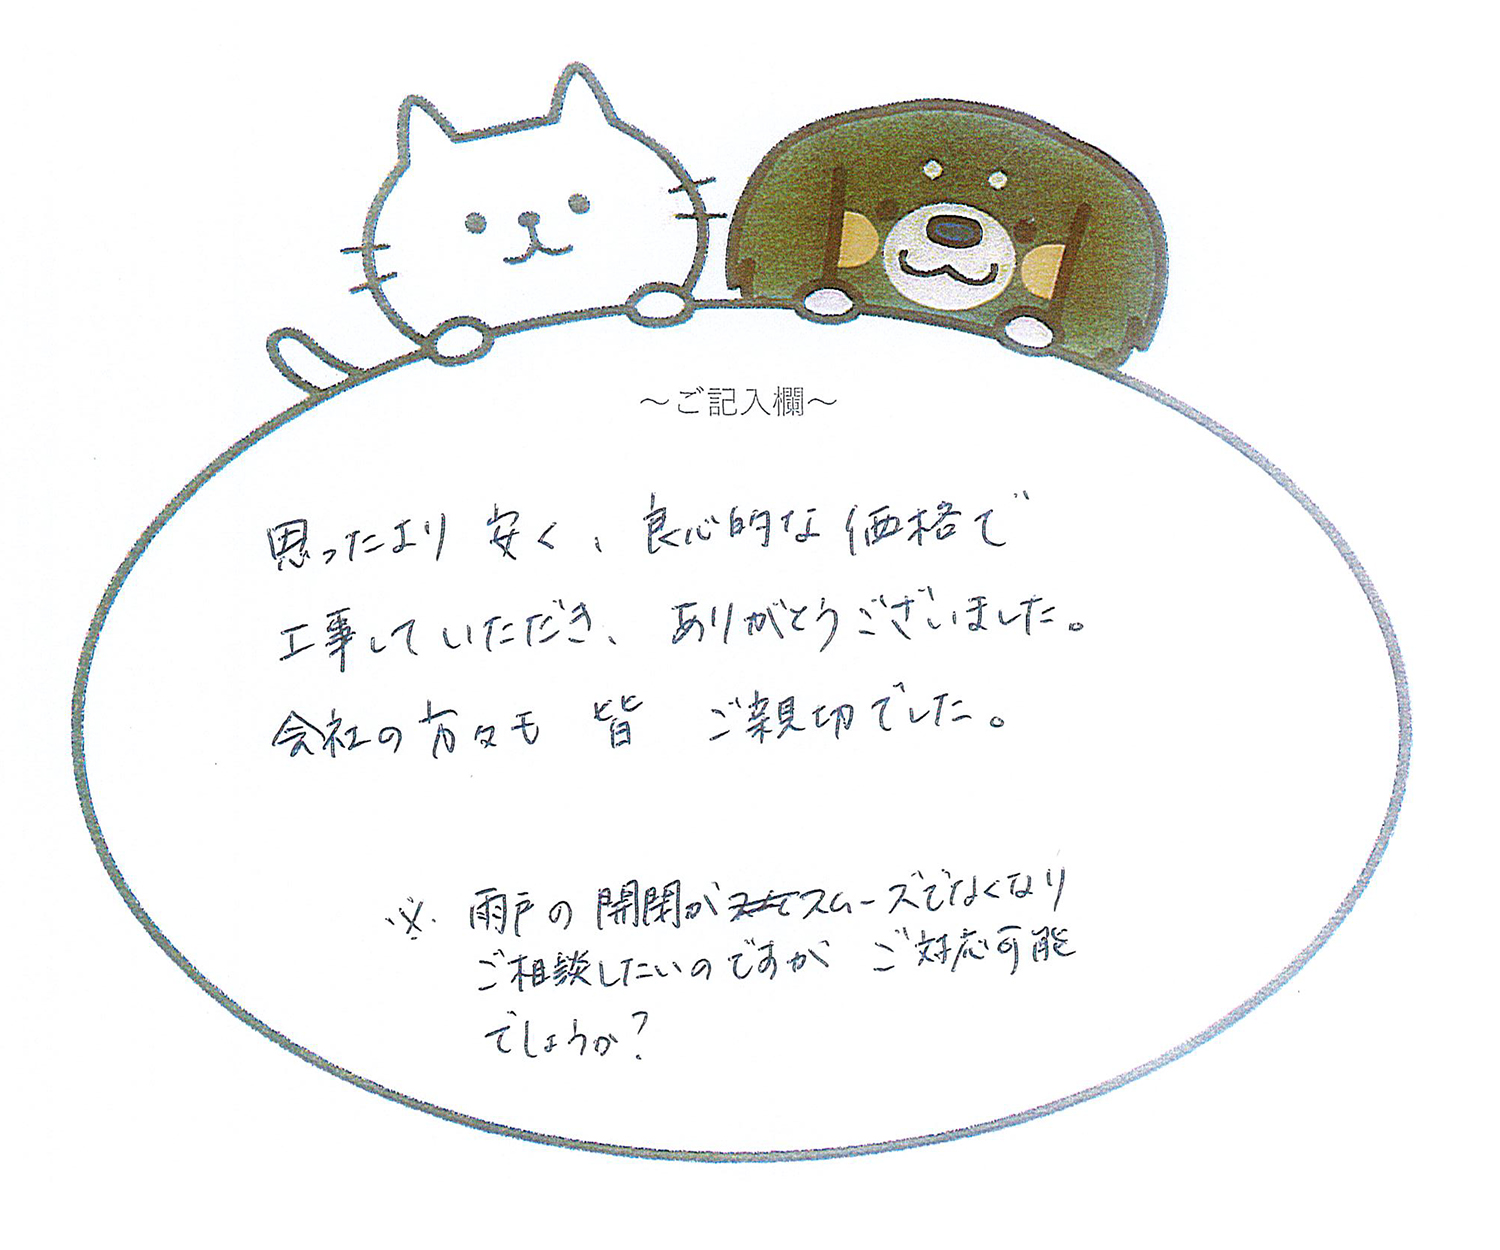 ～ご記入欄～
思ったより 安く、良心的な価格で
工事していただき、ありがとうございました。
会社の方々も 皆 ご親切でした。
※ 雨戸の開閉がスムーズでなくなり
ご相談したいのですが ご対応可能
でしょうか？